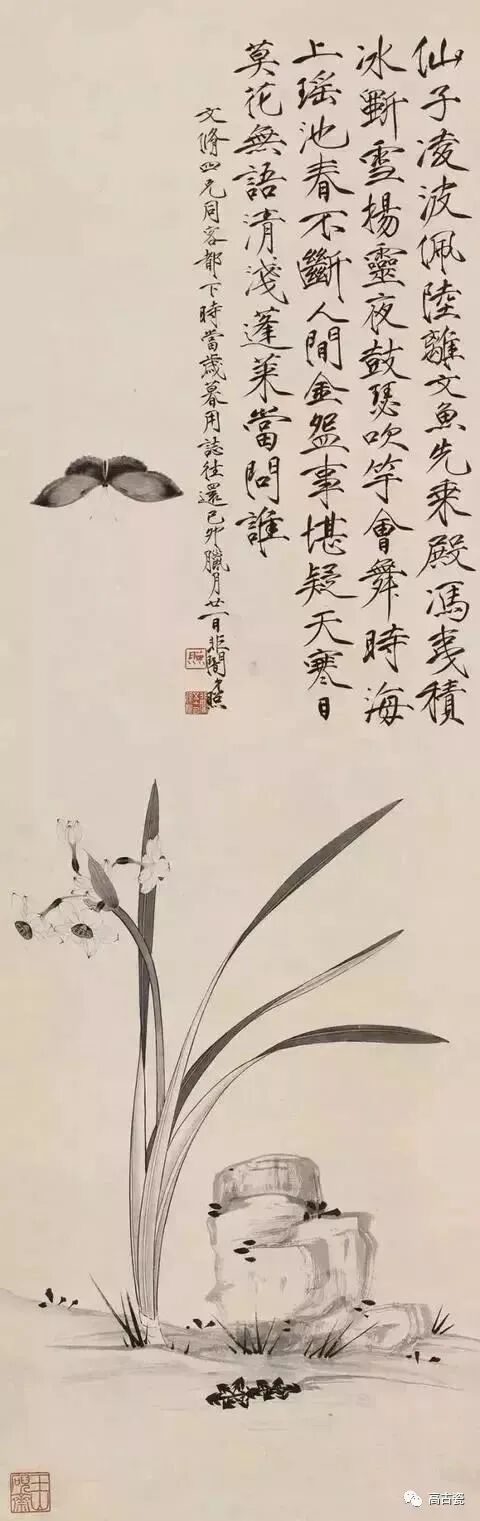 仙子凌波佩陸離文魚先乘殿馮夷積
冰斲雪揚靈夜鼓瑟吹竽會舞時海
上瑤池春不斷人間金盌事堪疑天寒日
莫花無語清淺蓬萊當問誰
文脩四兄同客都下時當歲暮用誌往還己卯臘月廿一日非闇照
高古瓷